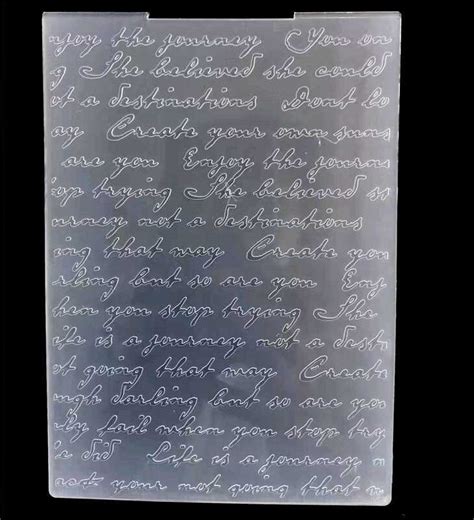 njoy the journey You on
g She believed she could
ot a destinations Dont lo
ay Create your own suns
are you Enjoy the journ
top trying She believed s
urney not a destinations
ing that way Create you
rling but so are you Enj
hen you stop trying She
ife is a journey not a dest
ot going that way Create
ugh darling but so are you
ly fail when you stop try
e did Life is a journey
back your not going that w